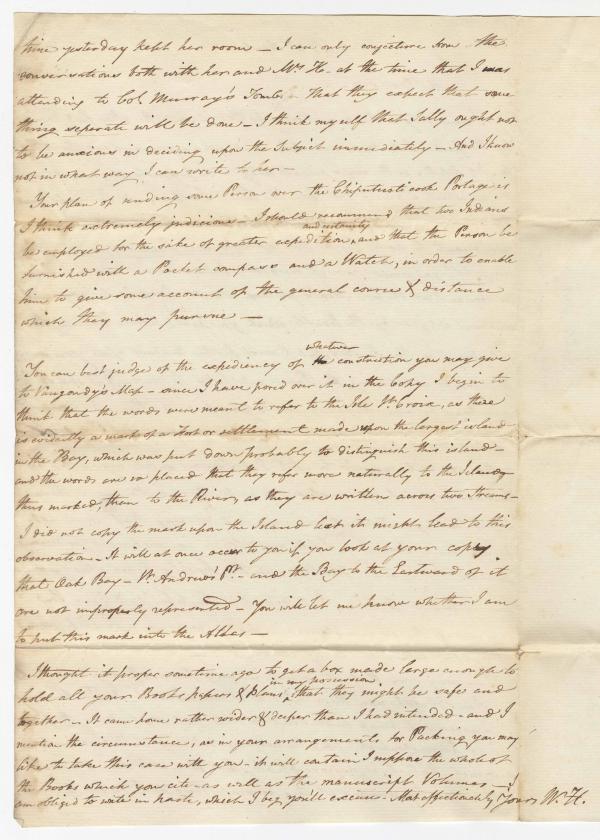 time yesterday kept her room – I can only conjecture from the
conversations both with her and Mrs. H– at the time that I was
attending to Col Murray's Tomb – that they expect that some
thing separate will be done – I think myself that Sally ought not
to be anxious in deciding upon the Subject immediately – And I know
not in what way I can write to her –
Your plan of sending some Person over the Chiputneticook Portage is
I think extremely judicious – I should recommend that two Indians
and certainty
be employed for the sake of greater expedition, and that the Person be
furnished with a Pocket compass and a Watch, in order to enable
him to give some account of the general course & distance
which they may pursue –
whatever
You can best judge of the expediency of the construction you may give
to Vaugondy's Map – since I have pored over it in the Copy I begin to
think that the words were meant to refer to the Isle St. Croix, as there
is evidently a mark of a Fort or settlement made upon the largest island
in the Bay, which was put down probably to distinguish this island –
and the words are so placed that they refer more naturally to the Island
thus marked, than to the River, as they are written across two Streams –
I did not copy the mark upon the Island lest it might lead to this
observation – It will at once occur to you if you look at your copy
that Oak Bay – St. Andrew's Pt. – and the Bay to the Eastward of it
are not improperly represented – You will let me know whether I am
to put this mark into the Atlas –
I thought it proper sometime ago to get a box made large enough to
in my possession
hold all your Books papers & plans, that they might be safe and
together – It came home rather wider & deeper than I had intended – and I
mention the circumstance, as in your arrangements for Packing you may
like to take this case with you – it will contain I suppose the whole of
the Books which you cite – as well as the manuscript Volumes – I
am obliged to write in haste, which I beg you'll excuse – Most affectionately Yours W. H.